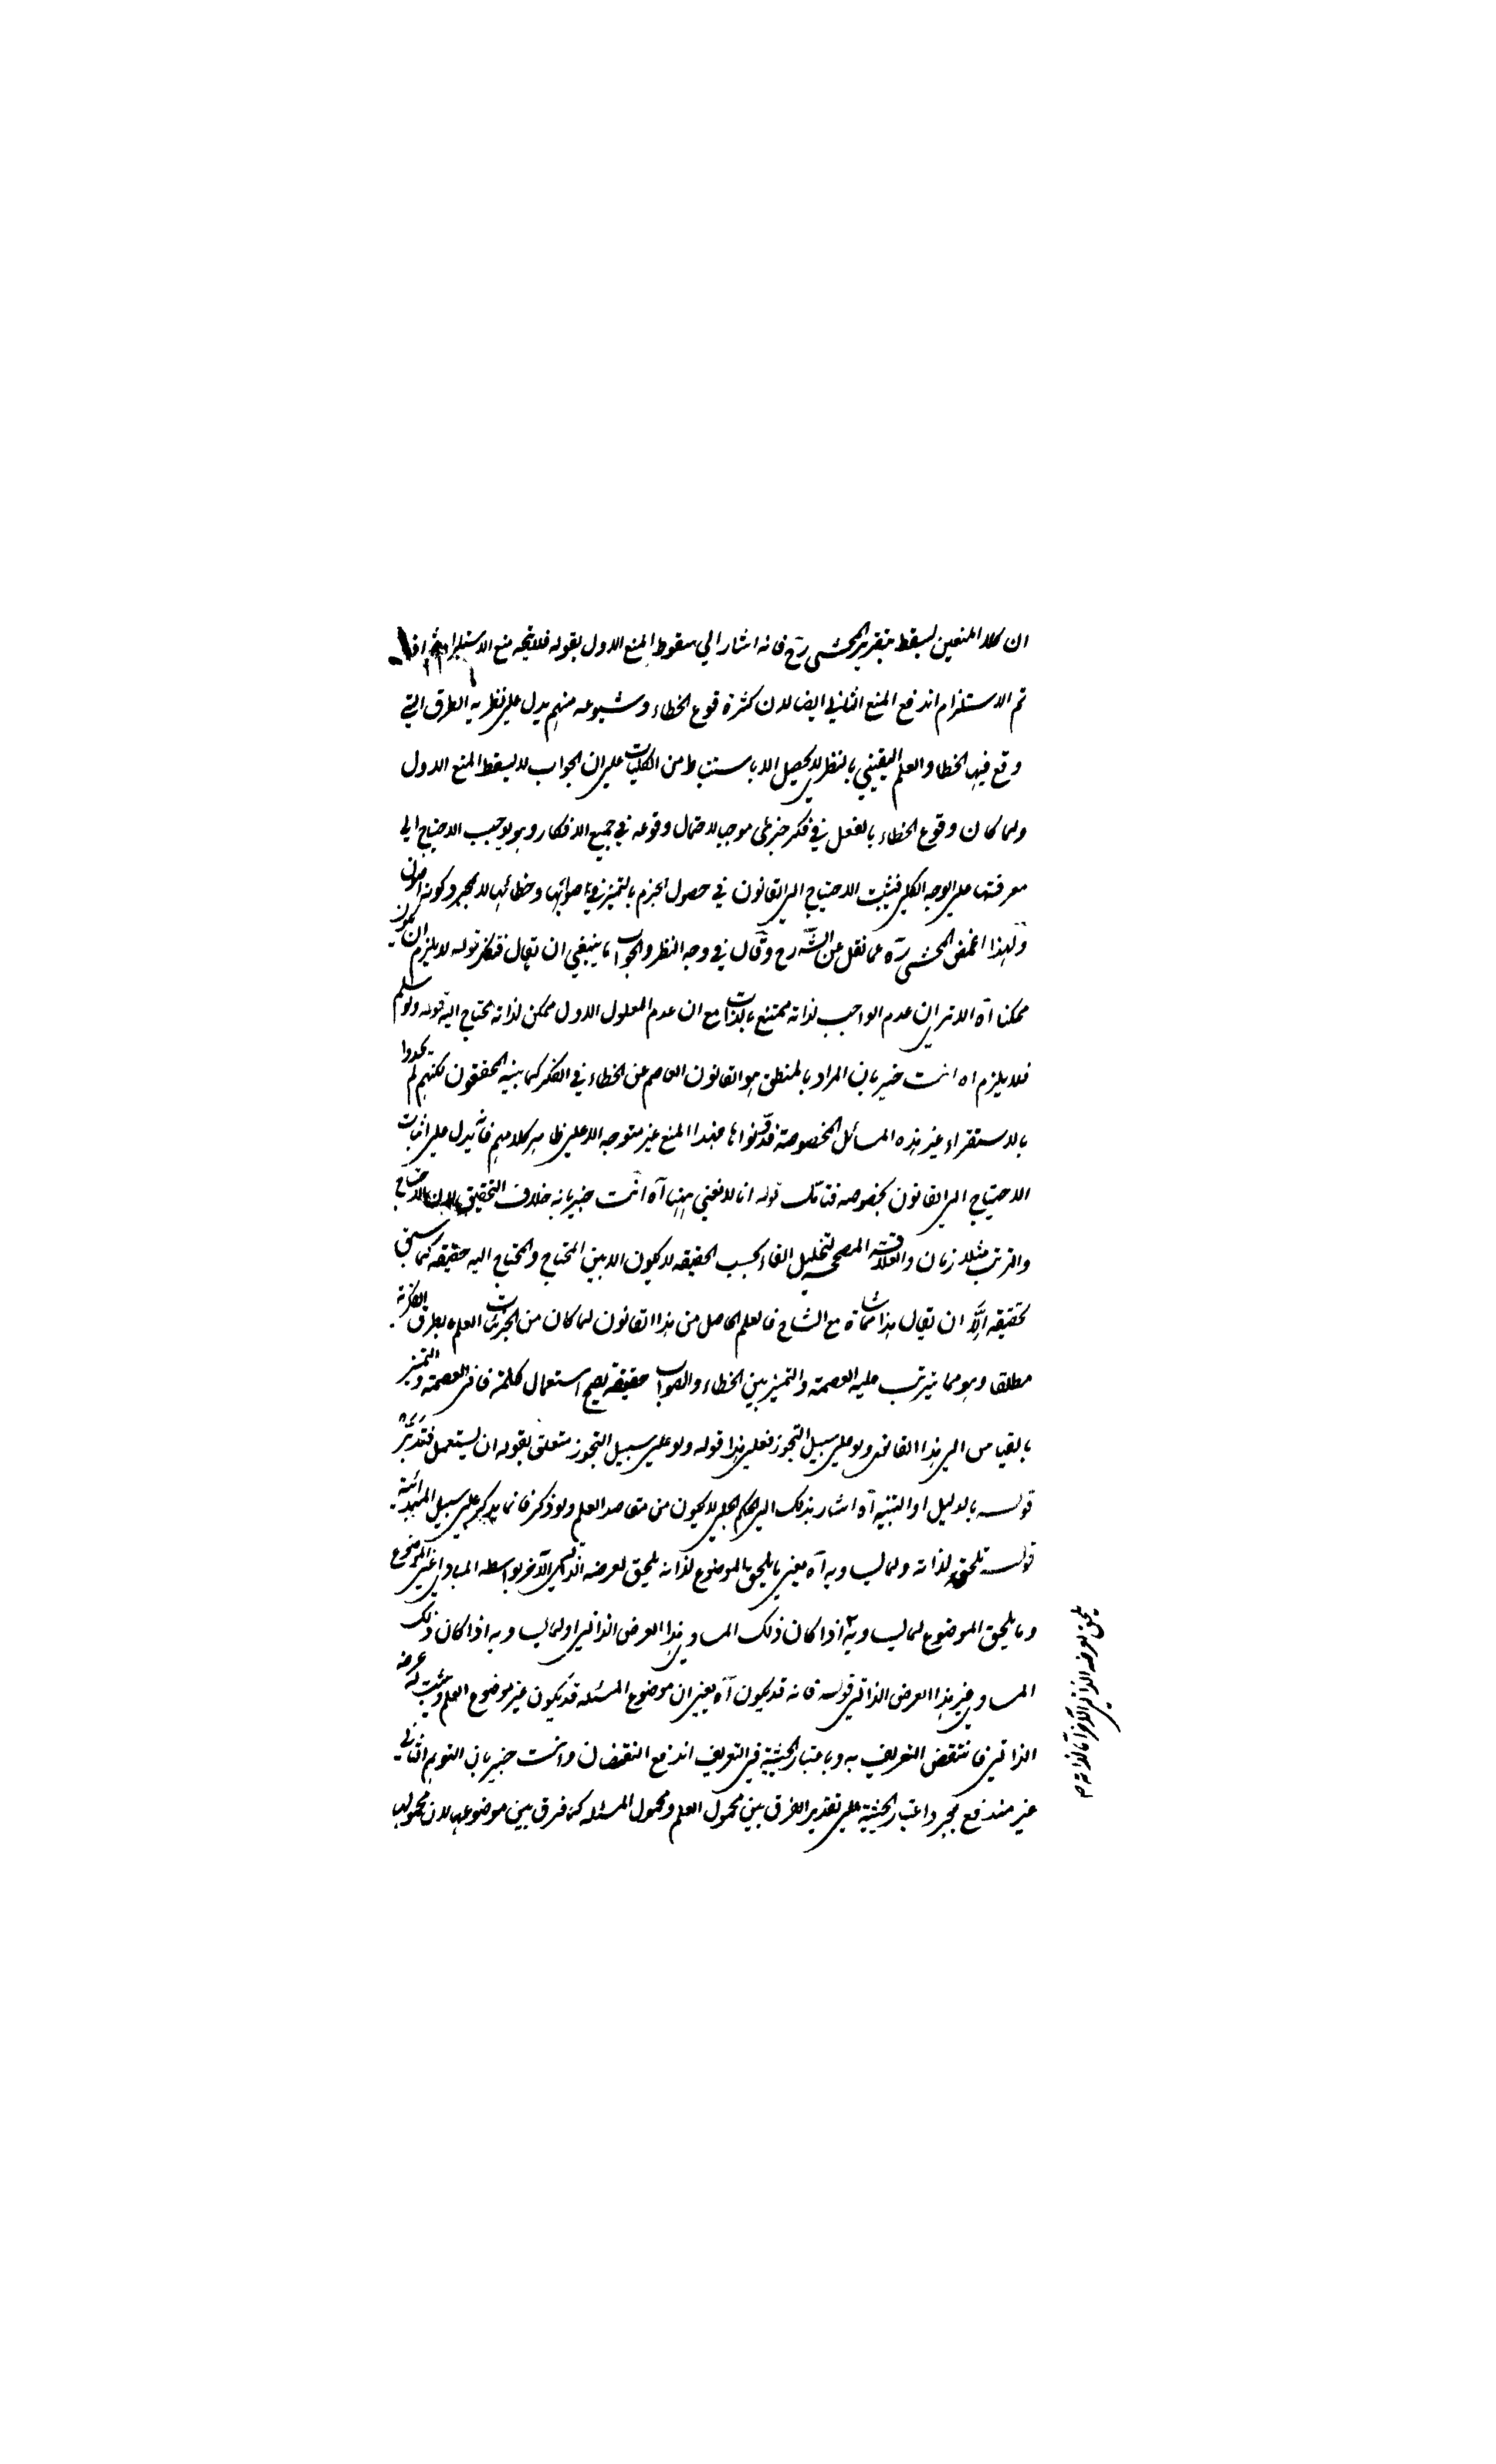 ان كلا المنعين يسقط بتقرير المحشي رح فانه اشار الي سقوط المنع الاول بقوله فلا يتجه منع الاستلزام اذا
تم الاستلزام اندفع المنع الثاني ايضا لان كثرة قوع الخطاء وشيوعه منهم يدل علي نظرية الطرق التي
وقع فيها الخطا والعلم اليقيني بالنظر لا يحصل الا باستنباط من الكليات علي ان الجواب لا يسقط المنع الاول
ولما كان وقوع الخطاء بالفعل في فكر جزئي موجبا لاحتمال وقوعه في جميع الافكار وهو يوجب الاحتياج الي
معرفتها علي الوجه الكلي فيثبت الاحتياج الي القانون في حصول الجزم بالتميز بين صوابها وخطائها لا بمجرد كونه
ولهذا اغمض المحشي ره عما نقل عن الشارح وقال في وجه النظر والجواب ما ينبغي ان يقال فتفكر قوله لا يلزم ان يكون
ممكنا آه الا تري ان عدم الواجب لذاته ممتنع بالذات مع ان عدم المعلول الاول ممكن لذاته محتاج اليه قوله ولو سلم
فلا يلزم اه انت خبير بان المراد بالمنطق هو القانون العاصم عن الخطاء في الفكر كما بينه المحققون لكنهم لم يجدوا
بالاستقراء غير هذه المسائل المخصوصة فدونوها فهذا المنع غير متوجه الا علي ظاهر كلامهم فانه يدل علي اثبات
الاحتياج الي القانون بخصوصه فتامل قوله انا لا نعني ههنا آه انت خبير بانه خلاف التحقيق لان الاحتياج
والترتب مثلا زمان والعلاقة المصححة لتخليل الفاء بحسب الحقيقه لا يكون الا بين المحتاج والمحتاج اليه حقيقه كما سبق
تحقيقه الا ان يقال هذا مماشاة مع الشارح فالعلم الحاصل من هذا القانون لما كان من الجزئيات العلم بطرق الفكرية
مطلقا وهو مما يترتب عليه العصمة والتميز بين الخطاء والصواب حقيقة يصح استعمال كلمة فا في العصمة والتميز
بالقياس الي هذا القانون ولو علي سبيل التجوز فعلي هذا قوله ولو علي سبيل التجوز متعلق بقوله ان يستعمل فتدبر
قوله بالدليل او التنبيه آه اشار بذلك الي الحكم الجلي لا يكون من مقاصد العلم ولو ذكر فانما يذكر علي سبيل المبدائية
قوله تلحق لذاته ولما يساويه آه يعني ما يلحق بالموضوع لذاته يلحق لعرضه الذاتي الآخر بواسطه المساوي اعني الموضوع
وما يلحق الموضوع لما يساويه اذا كان ذلك المساوي هذا العرض الذاتي او لما يساويه اذا كان ذلك
المساوي غير هذا العرض الذاتي قوله فانه قد يكون آه يعني ان موضوع المسئله قد يكون غير موضوع العلم ويثبت له عرضه
الذاتي فانتقض التعريف به وباعتبار الحيثية في التعريف اندفع النقضان وانت خبير بان التوهم الثاني
غير مندفع بمجرد اعتبار الحيثية علي تقدير الفرق بين محمول العلم ومحمول المسئله كما فرق بين موضوعيها لان محمولها
يلحق لعرضه الذاتي الآخر اما لذاته م